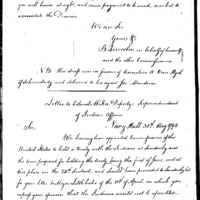 you will have at night, and come prepared to be made, or at least to
accumulate the Dinner
We are Sir
Yours &c
B. Lincoln, in behalf of himself
and the other commissioners
N.B. The draft was in favour of Cornelius A. Van Dyck
of Schenectady and delivered to his agent for
Letter to Colonel McKee Deputy Superintendant
of Indian Affairs
Sir, Navy Hall 30th May 1793
We having been appointed Commissioners of the
United States to hold a treaty with the Indians at Sandusky and
the time proposed for holding the treaty being the first of June, and at
this place on the 25th Instant, and should have proceeded to Sandusky but
for your letter to Major Littlehales of the 10th of April, in which you
expect your opinion that the Indians would not be assembled